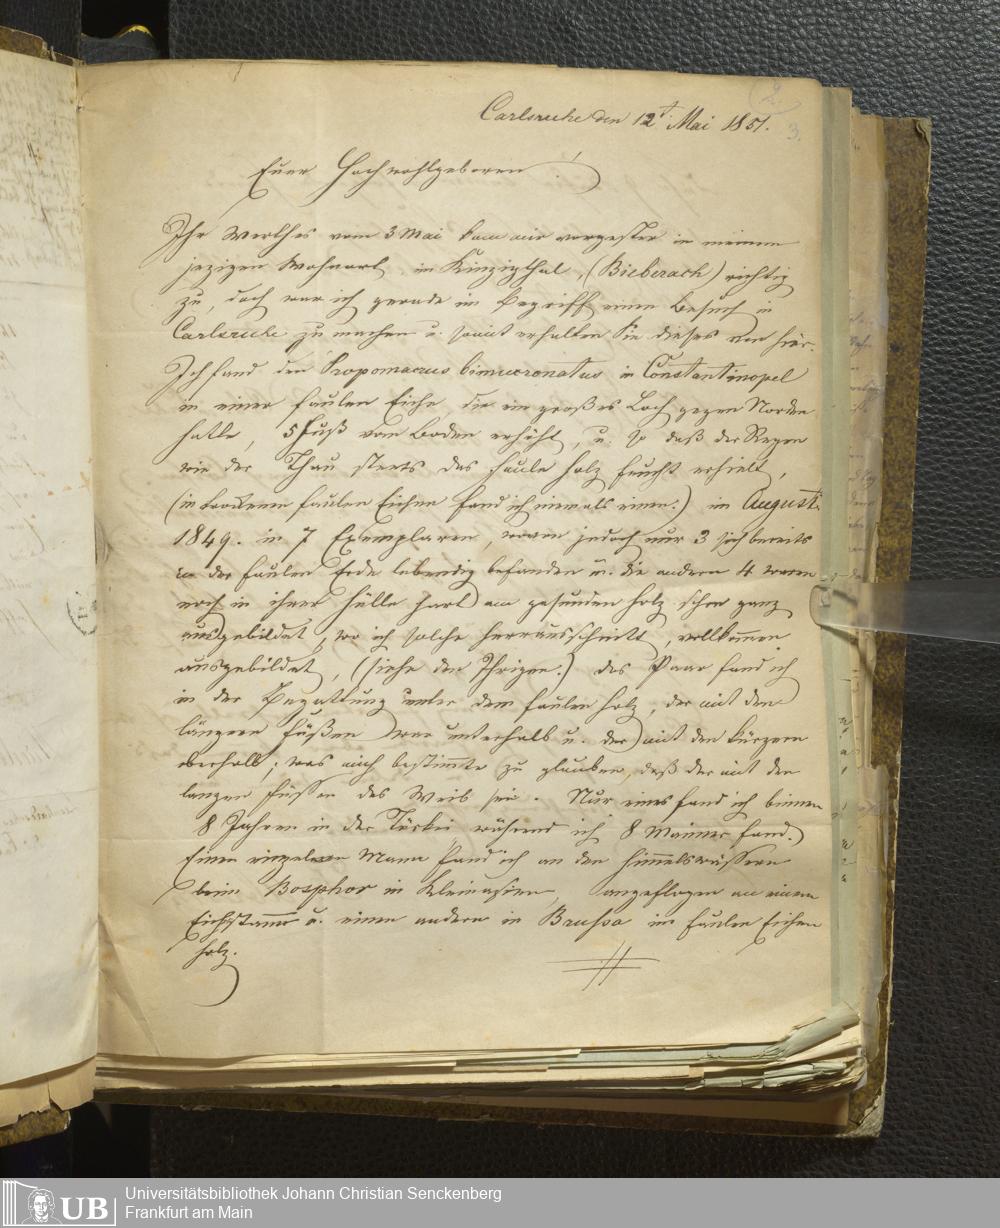 2.
3.
Carlsruhe den 12t Mai 1851.
Euer Hochwohlgeboren!
Ihr Werthes vom 3 Mai kam mir vorgester in meinem
jezigen Wohnort, im Kinzigthal, (Bieberach) richtig
zu, doch war ich gerade im Begriff einen Besuch in
Carlsruhe zu machen u. somit erhalten Sie dieses von hier.
Ich fand den Propomacrus bimucronatus in Constantinopel
in einer faulen Eiche die ein großes Loch gegen Norden
hatte, 5 Fuß vom Boden erhöht, u. so daß der Regen
wie der Thau steets das faule Holz feucht erhielt,
(in trockenen faulen Eichen fand ich niemals einen.) im August
1849. in 7 Exemplaren, wovon jedoch nur 3 sich bereits
in der faulen Erde lebendig befanden u. die andern 4 waren
noch in ihrer Hülle hart am gesunden Holz schon ganz
ausgebildet, wo ich solche herrausschnitt, vollkommen
ausgebildet, (siehe den Ihrigen.) das Paar fand ich
in der Begattung unter dem faulen Holz, der mit den
längern Füßen war unterhalb u. der mit den kürzern
oberhalb; was mich bestimmte zu glauben, daß der mit den
langen Füssen das Weib sei. Nur eines fand ich binnen
8 Jahren in der Türkei während ich 8 Männer fand.)
Einen einzelnen Mann fand ich an den Himmelswässern
beim Bosphor in Kleinasien, angeflogen an einem
Eichstamm u. einen andern in Brussa im faulen Eichen
holz.
Universitätsbibliothek Johann Christian Senckenberg
Frankfurt am Main
UB